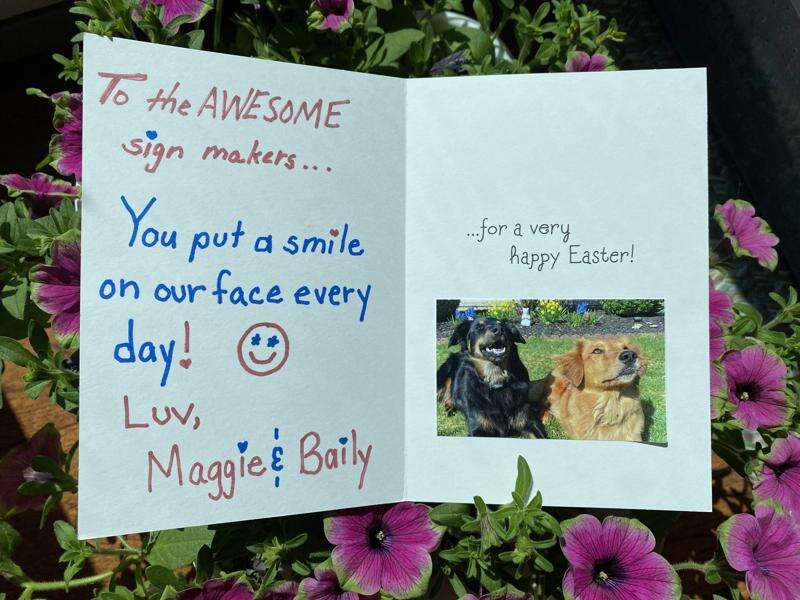 To the AWESOME
sign makers...
You put a smile
on our face every
day!
Luv,
Maggie & Baily
...for a very
happy Easter!